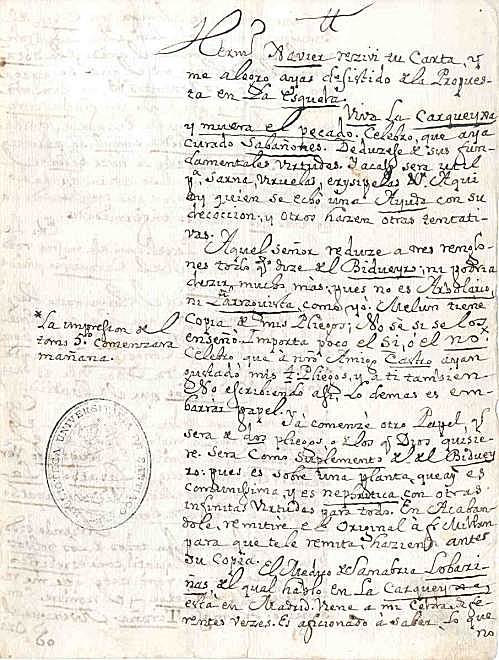 tt
Herm.o Xavier rezivi tu Carta, y
me alegro ayas desistido de la Propues-
ta en La Esquela.
Viva La Carqueyxa
y muera el pecado. Celebro, que aya
curado Sabañones. Deduzese de sus fun-
damentales virtudes. Y acaso sera util
p.a Sarna, Viruelas, erysipelas &.a Aqui
ay quien se echó una Ayuda con su
decoccion, y otros hazen otras tentati-
vas.
Aquel Señor reduze a tres renglo-
nes todo q.to dize del Bidueyro; ni podria
dezir mucho mas; pues no es Arbolario,
ni Carrasquista como yo. Meluin tiene
Copia de mis Pliegos; No se si se los
enseñó. Importa poco el Si, o el no.
Celebro que á nro Amigo Castro ayan
gustado mis 4 Pliegos, y a ti tambien
No escribiendo assi, lo demas es em-
barrar papel.
*La impresion del
tomo 5.o comenzará
mañana.
Ya comenzé otro Papel, y
sera de dos pliegos, o de los q Dios quisie-
re. Sera como Suplemento del Biduey-
ro: pues es sobre una planta, que ay es
comunissima, y es nephritica con otras
infinitas Virtudes para todo. En Acaban-
dole, remitire el Original à
para que te le remita, haziendo antes
su Copia.
El Medico de Sanabria Lobari-
ñas, del qual hablo en La Carqueyxa
está en Madrid. Viene a mi Celda dife-
rentes vezes. Es aficionado a saber lo que
no
BIBLIOTECA UNIVERSITARIA
60